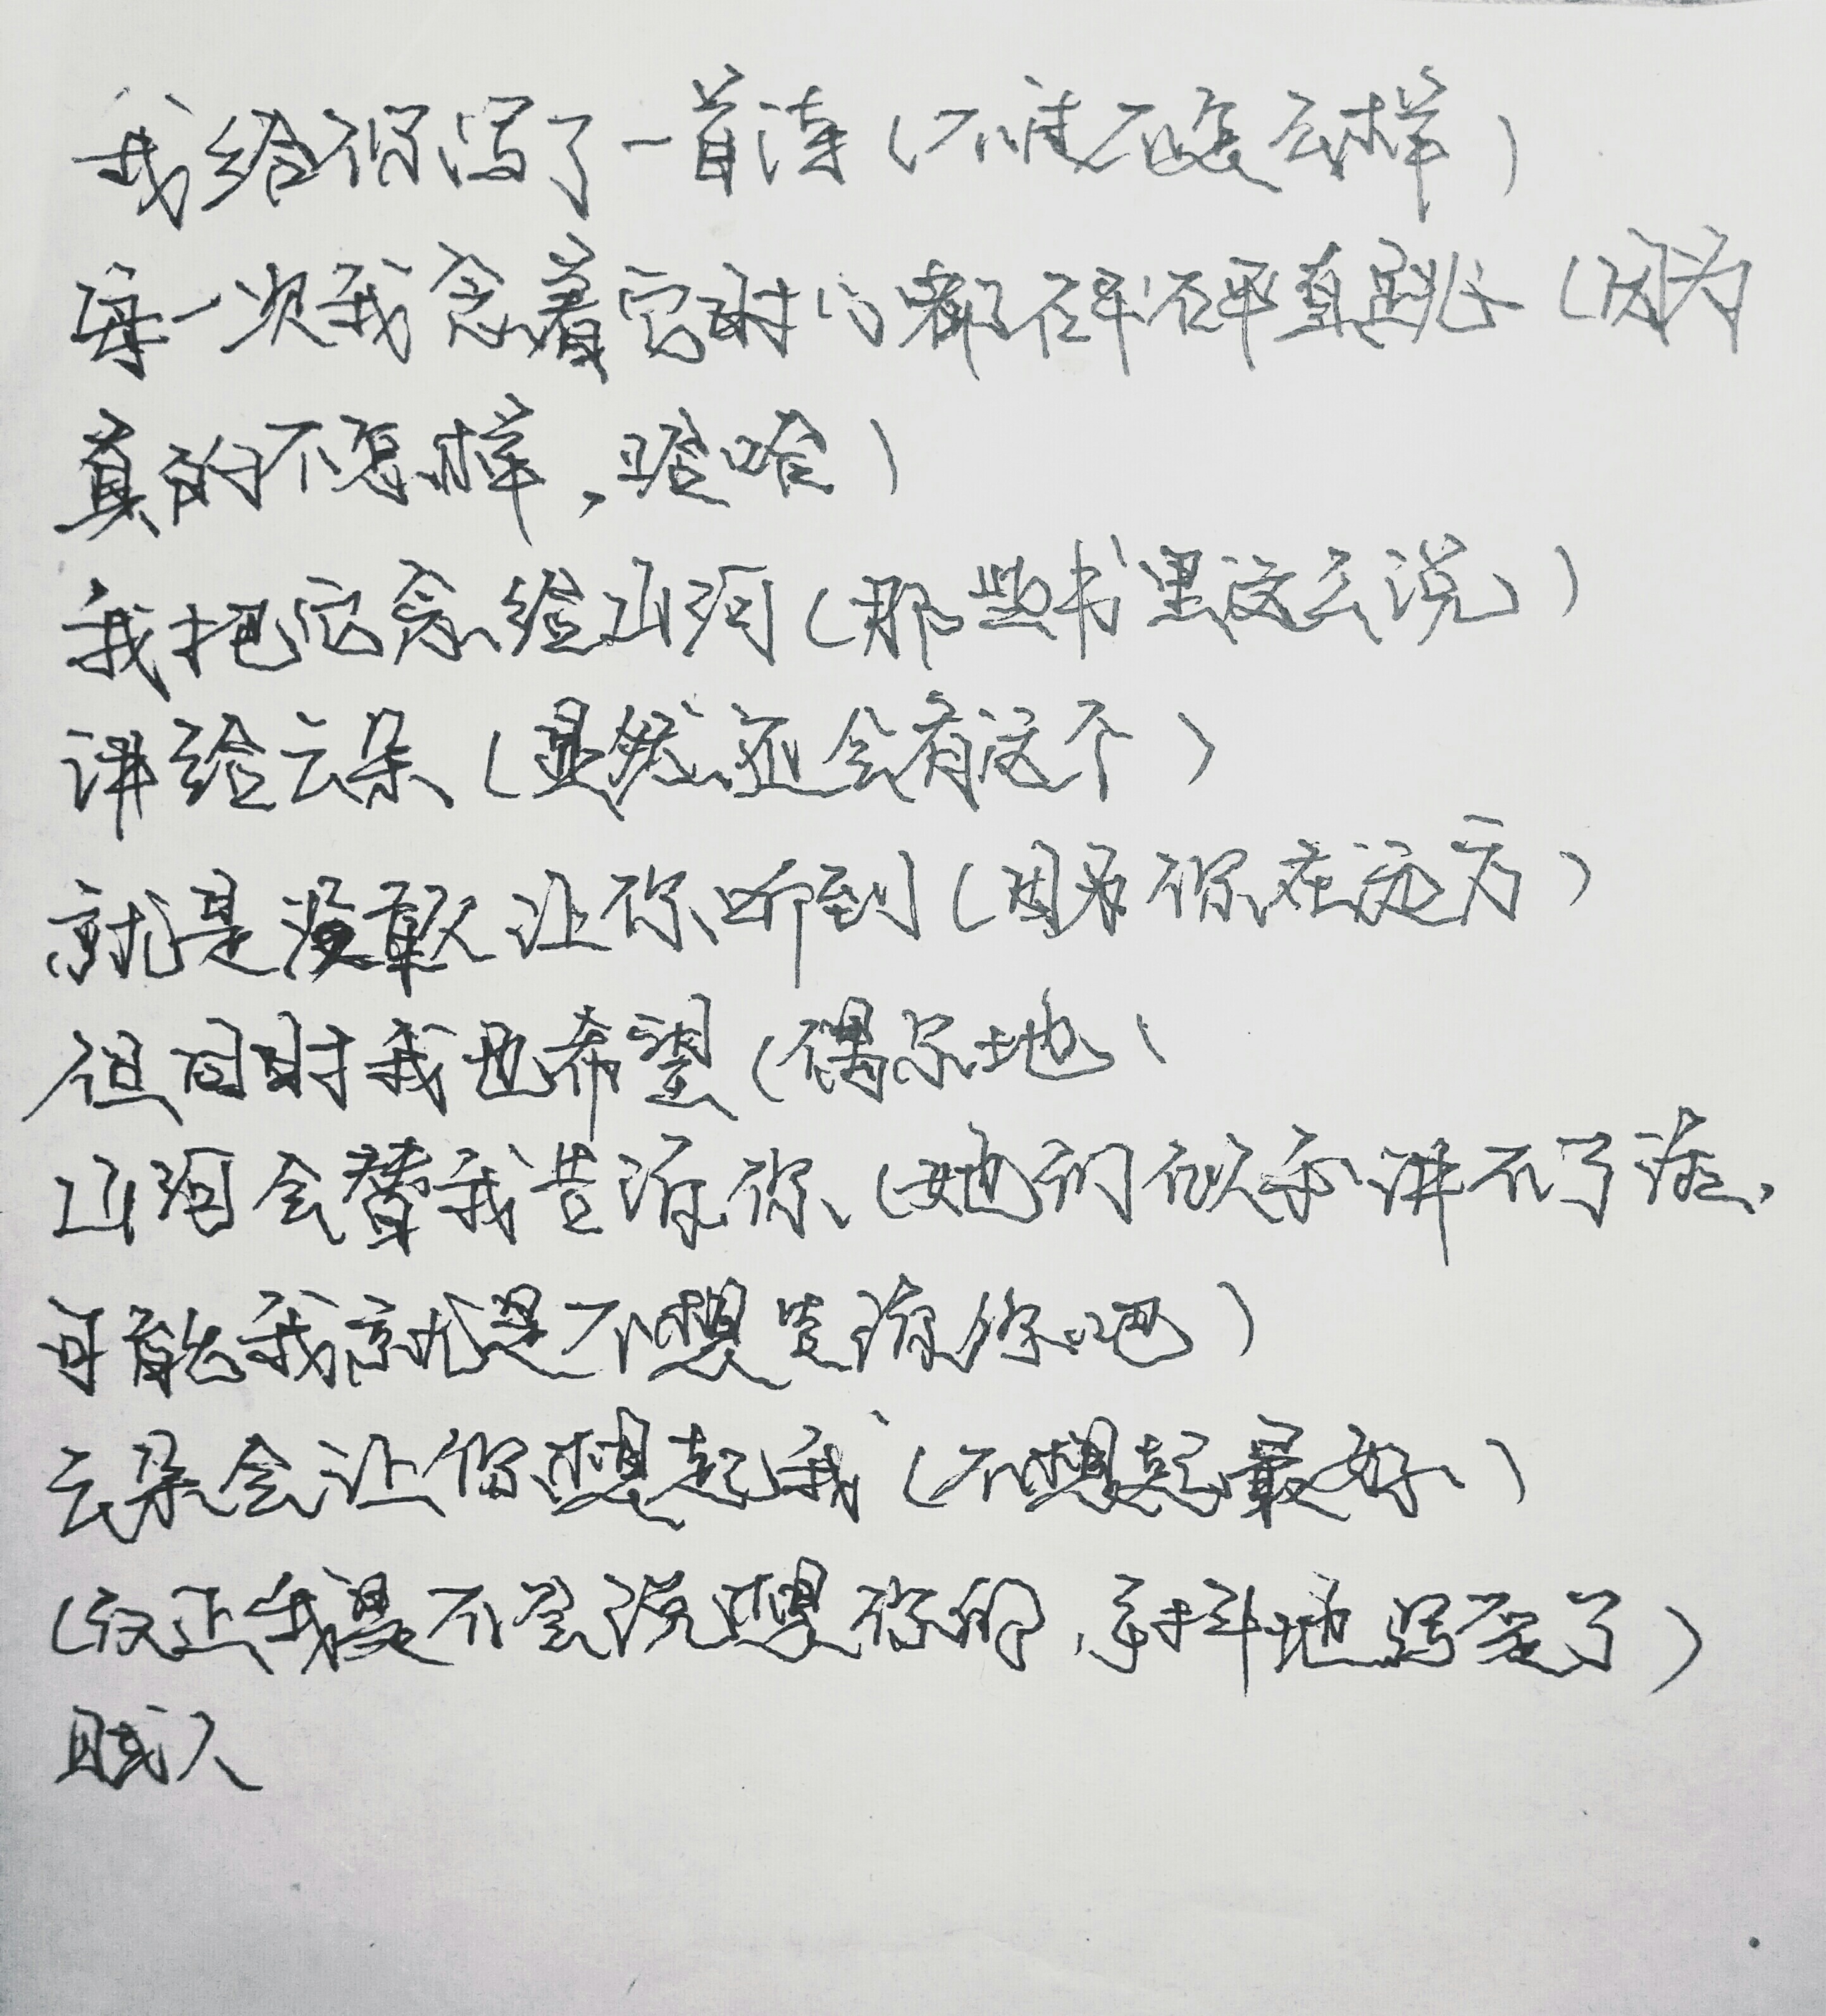 我给你写了一首诗(不过不怎么样)
每一次我念着它时心都砰砰直跳(因为
真的不怎样,哈哈)
我把它念给山河(那些书里这么说)
讲给云朵(显然应会有这个)
就是没敢让你听到(因为你在远方)
但同时我也希望(偶尔地)
山河会替我告诉你(她们似乎讲不了谎,
可能我就是不想告诉你吧)
云朵会让你想起我(不想起最好)
(反正我是不会说想你的,潦草地写完了)